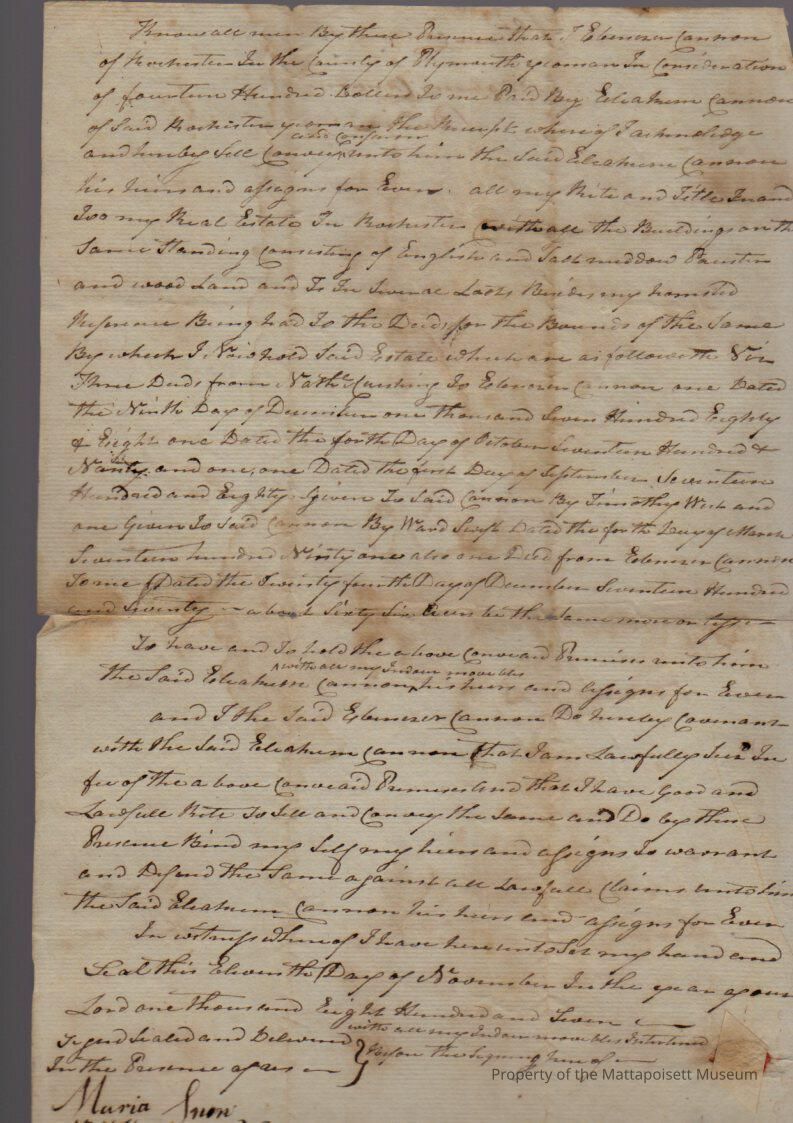 Know all men By these Presence that I Ebenezer Cannon
of Rochester In the County of Plymouth yeoman In Consideration
of fourteen Hundred Dollers To me Paid By Eliakum Cannon
of Said Rochester yeoman the Receipt whereof I acknoledge
and Conferm
and hereby Sell Convey unto him the Said Eliakum Cannon
his heirs and assigns for Ever all my Rite and Title In and
Too my Real Estate In Rochester with all the Buildings on the
Same Standing Consisting of English and Salt meddow Paster
and wood Land and Is In Several Lotts Besides my homsted
Reference Being had To the Deeds for the Bounds of the Same
By which I Now hold Said Estate which are as followeth Viz
Three Deeds from Nathll Cushing To Ebenezer Cannon one Dated
the Ninth Day of December one thousand Seven Hundred Eighty
& Eight one Dated the forth Day of October Seventeen Hundred &
Ninty and one, one Dated the first Day of September Seventeen
Hundred and Eighty Given To Said Cannon By Timothy West and
one Given To Said Cannon By Ward Swift Dated the forth Day of March
Seventeen hundred Ninty one also one Deed from Ebenezer Cannon
To me Dated the Twenty fourth Day of December Seventeen Hundred
and Seventy about Sixty Six Acers be the Same more or less
To have and To hold the above Conveaid Premises unto him
with all my Indoor movables
the Said Eliakum Cannon his heirs and Assigns for Ever
and I the Said Ebenezer Cannon Do hereby Covenant
with the Said Eliakum Cannon that I am Lawfully In
fee of the above Conveaid Premises and that I have Good and
Lawfull Rite To Sell and Convey the Same and Do by these
Presence Bind my Self my heirs and assigns to warrant
and Defend the Same against all Lawfull Claims unto him
the Said Eliakum Cannon his heirs and assigns for Ever
In witness whereof I have hereunto Set my hand and
Seal this Eleventh Day of November In the year of our
Lord one thousand Eight Hundred and Seven
with all my Indoor movables Interlined
Signed Sealed and Delivered
before the Signing hereof
In the Presence of us
Maria
Property of the Mattapoisett Museum